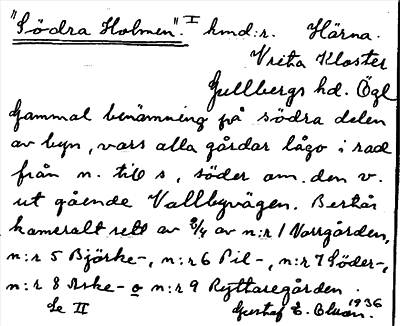 "Södra Holmen". I hmd:r. Härna.
Vreta Kloster
Gullbergs hd. Ögl
Gammal benämning på södra delen
av byn, vars alla gårdar lågo i rad
från n. till s, söder om den v.
ut gående Vallbyvägen. Består
kameralt sett av 8/4 av n:r 1 Norrgården,
n:r 5 Björke-, n:r 6 Pil-, n:r 7 Söder-,
n:r 8 Aske- o n:r 9 Ryttaregården.
Se II Gustaf E. 1936